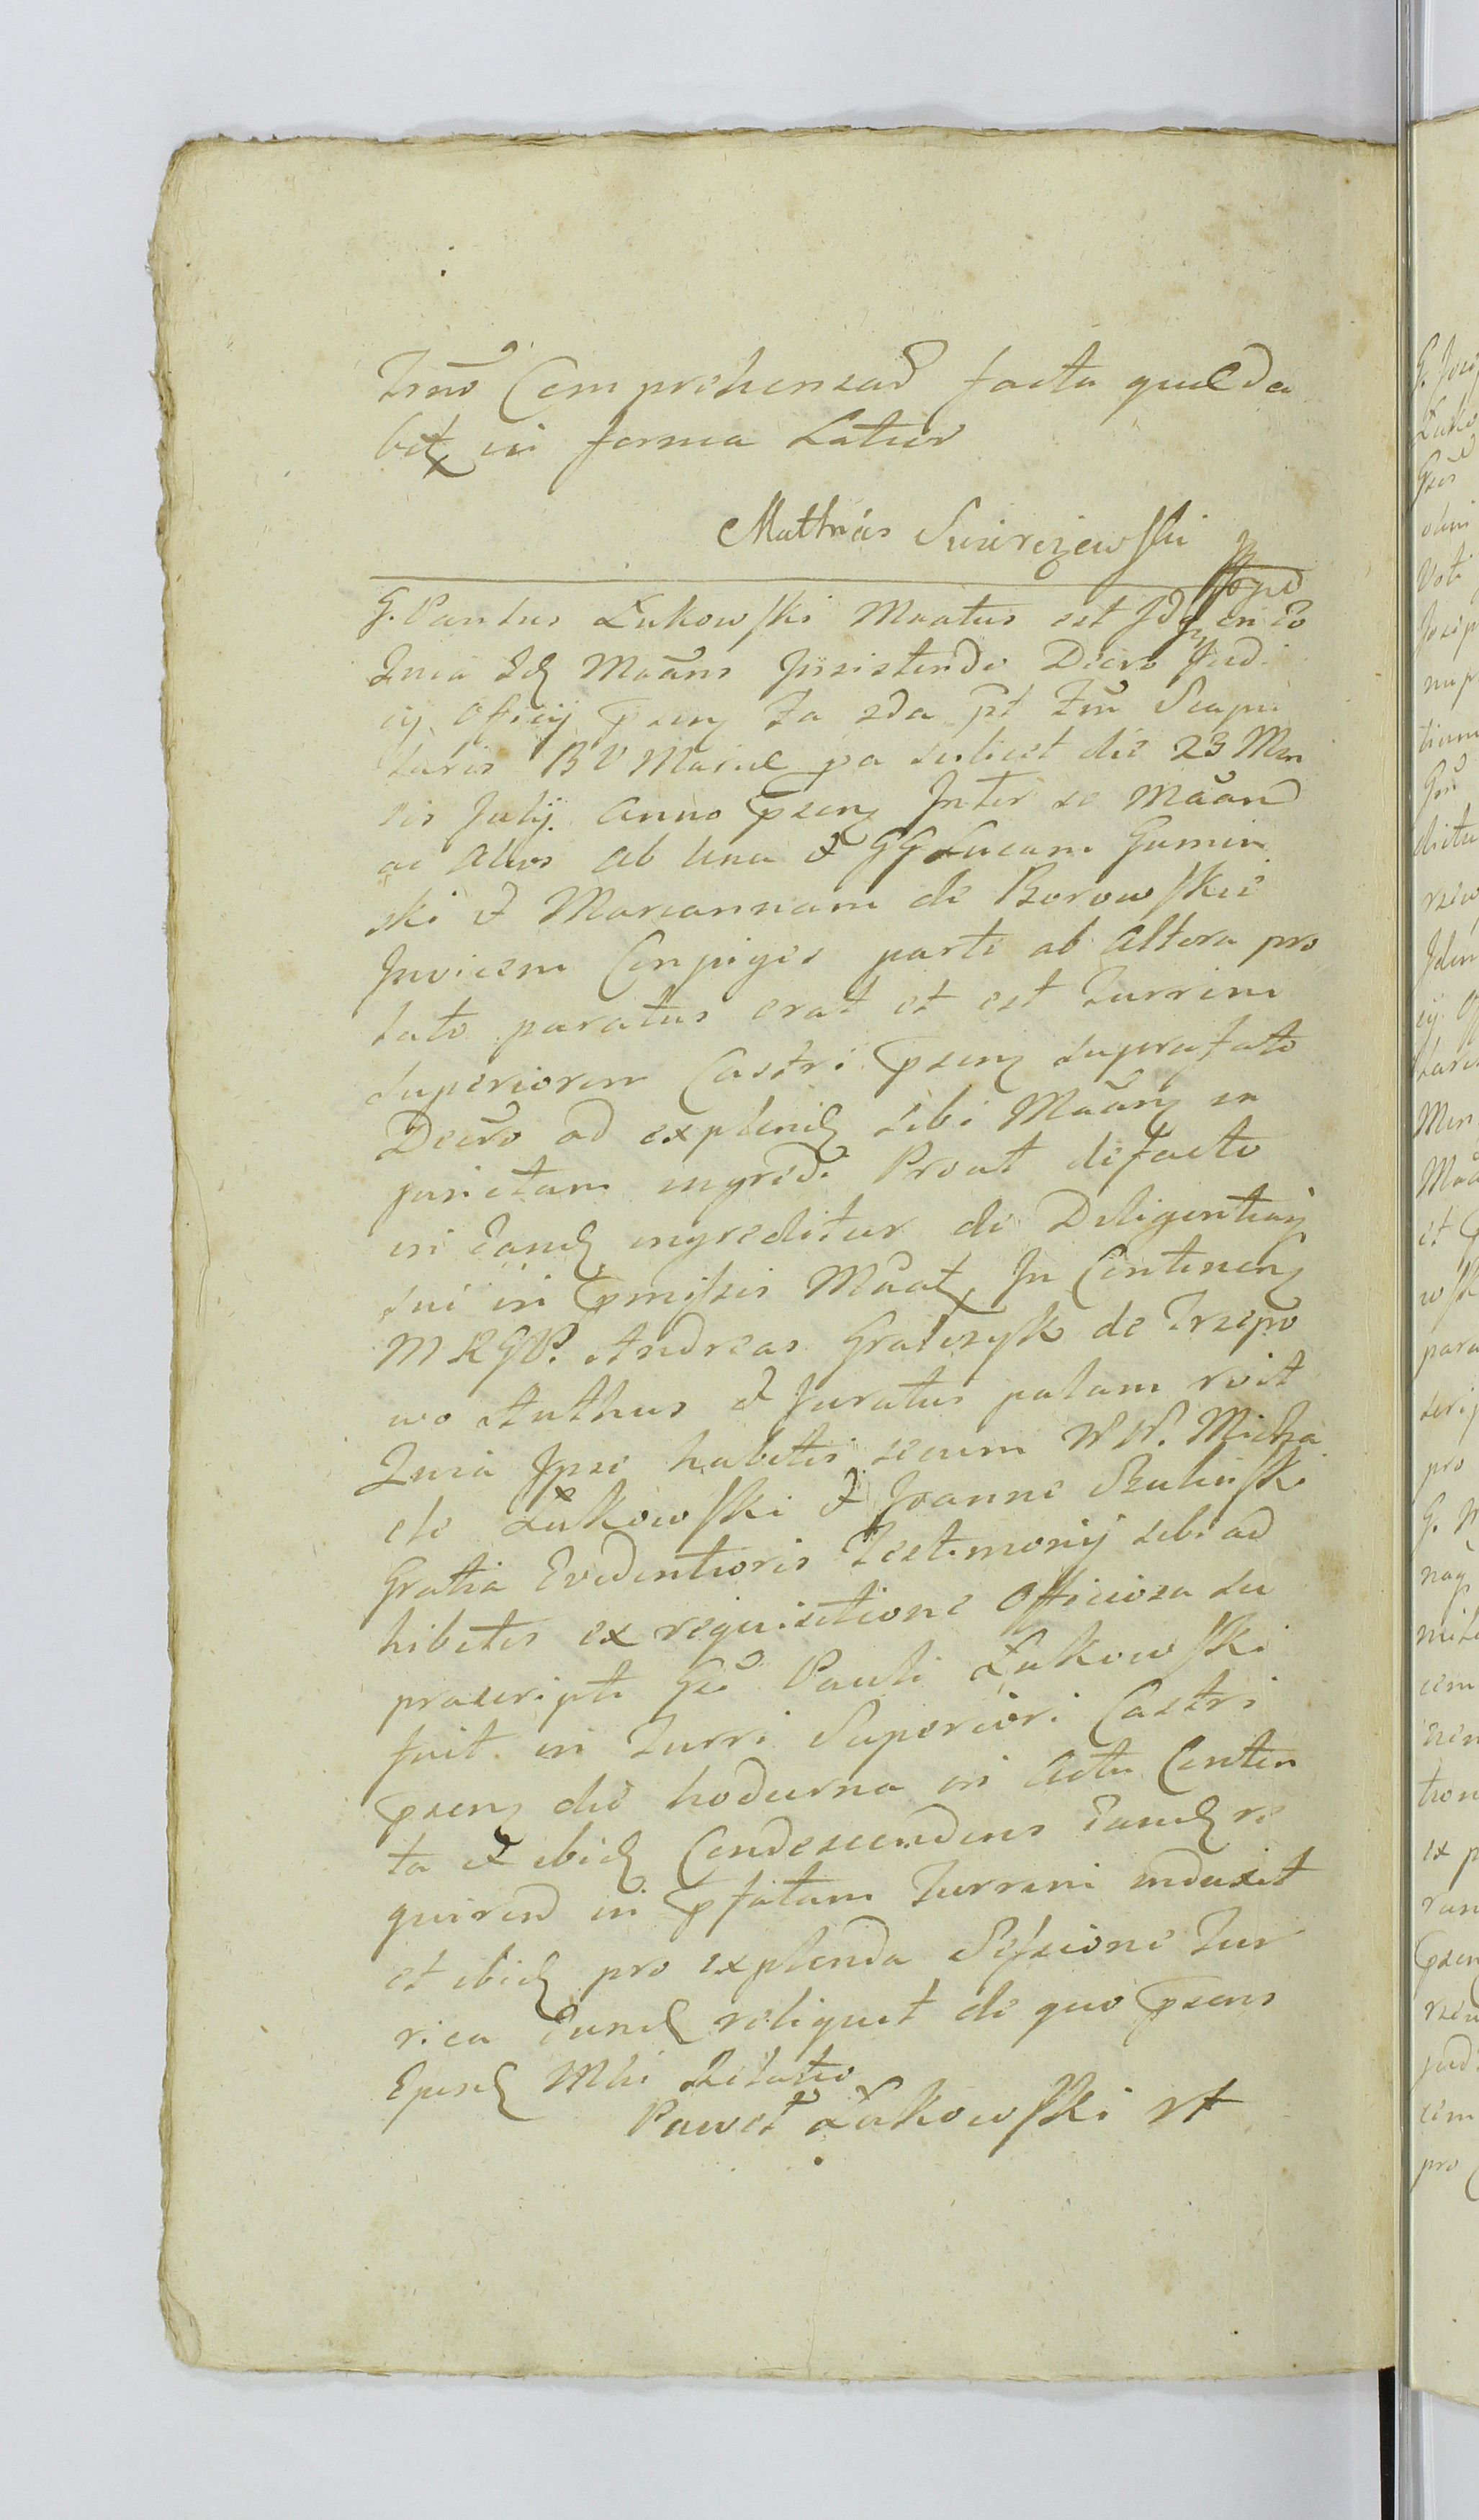 Trno Comprehensað facta quæda
bitx in forma Latior
Mathias Swierczewski
G. Paulus Łukowski Maatus est Idq in Eo
Quia Idq Maans Insistendo Decro Judi
cij Officij pseny Ta zda pt Tm Scapu
laris B V Mariæ pa scilicet die 23 Men
sis Julij anno pseny Inter se Maand
ac Alios ab Una & GG Lucam Gumin
ski & Mariannam de Borowskie
Invicem Conjuges parte ab Altera pro
lato paratus erat et est Turrim
Superiorem Castri pseny suprafato
Decro ad explend sibi Maany in
junctam ingredi Prout defacto
in Eand ingreditur de Diligentiaq
sui in pmissis Maat, In Continen
M R G P. Andreas Gralczyk de Trzepo
wo Authus & Juratus palam rvit
Quia Ipse habitis secum N N. Micha
ele Łukowski & Joanne Szulinski
Gratia Evidentioris Testimonij sibi ad
hibitis ex requisitione Officiosa su
prascripti Gsi Pauli Łukowski
fuit in Turri Superiori Castri
pseny die hodierna in Actu Conten
ta & ibid Condescendens Eund re
quirend in pfatam Turrim induxit
et ibid pro explenda Sessione Tur
rica Eund reliquit de quo psens
Ejusd Mhi Relatio
Paweł Łukowski